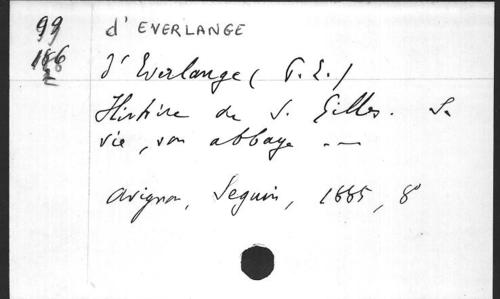 99 d' EVERLANGE
186
2
d' Everlange (P. E.)
Histoire de S. Gilles. Sa
vie, son abbaye . —
Avignon, Seguin, 1885, 8°